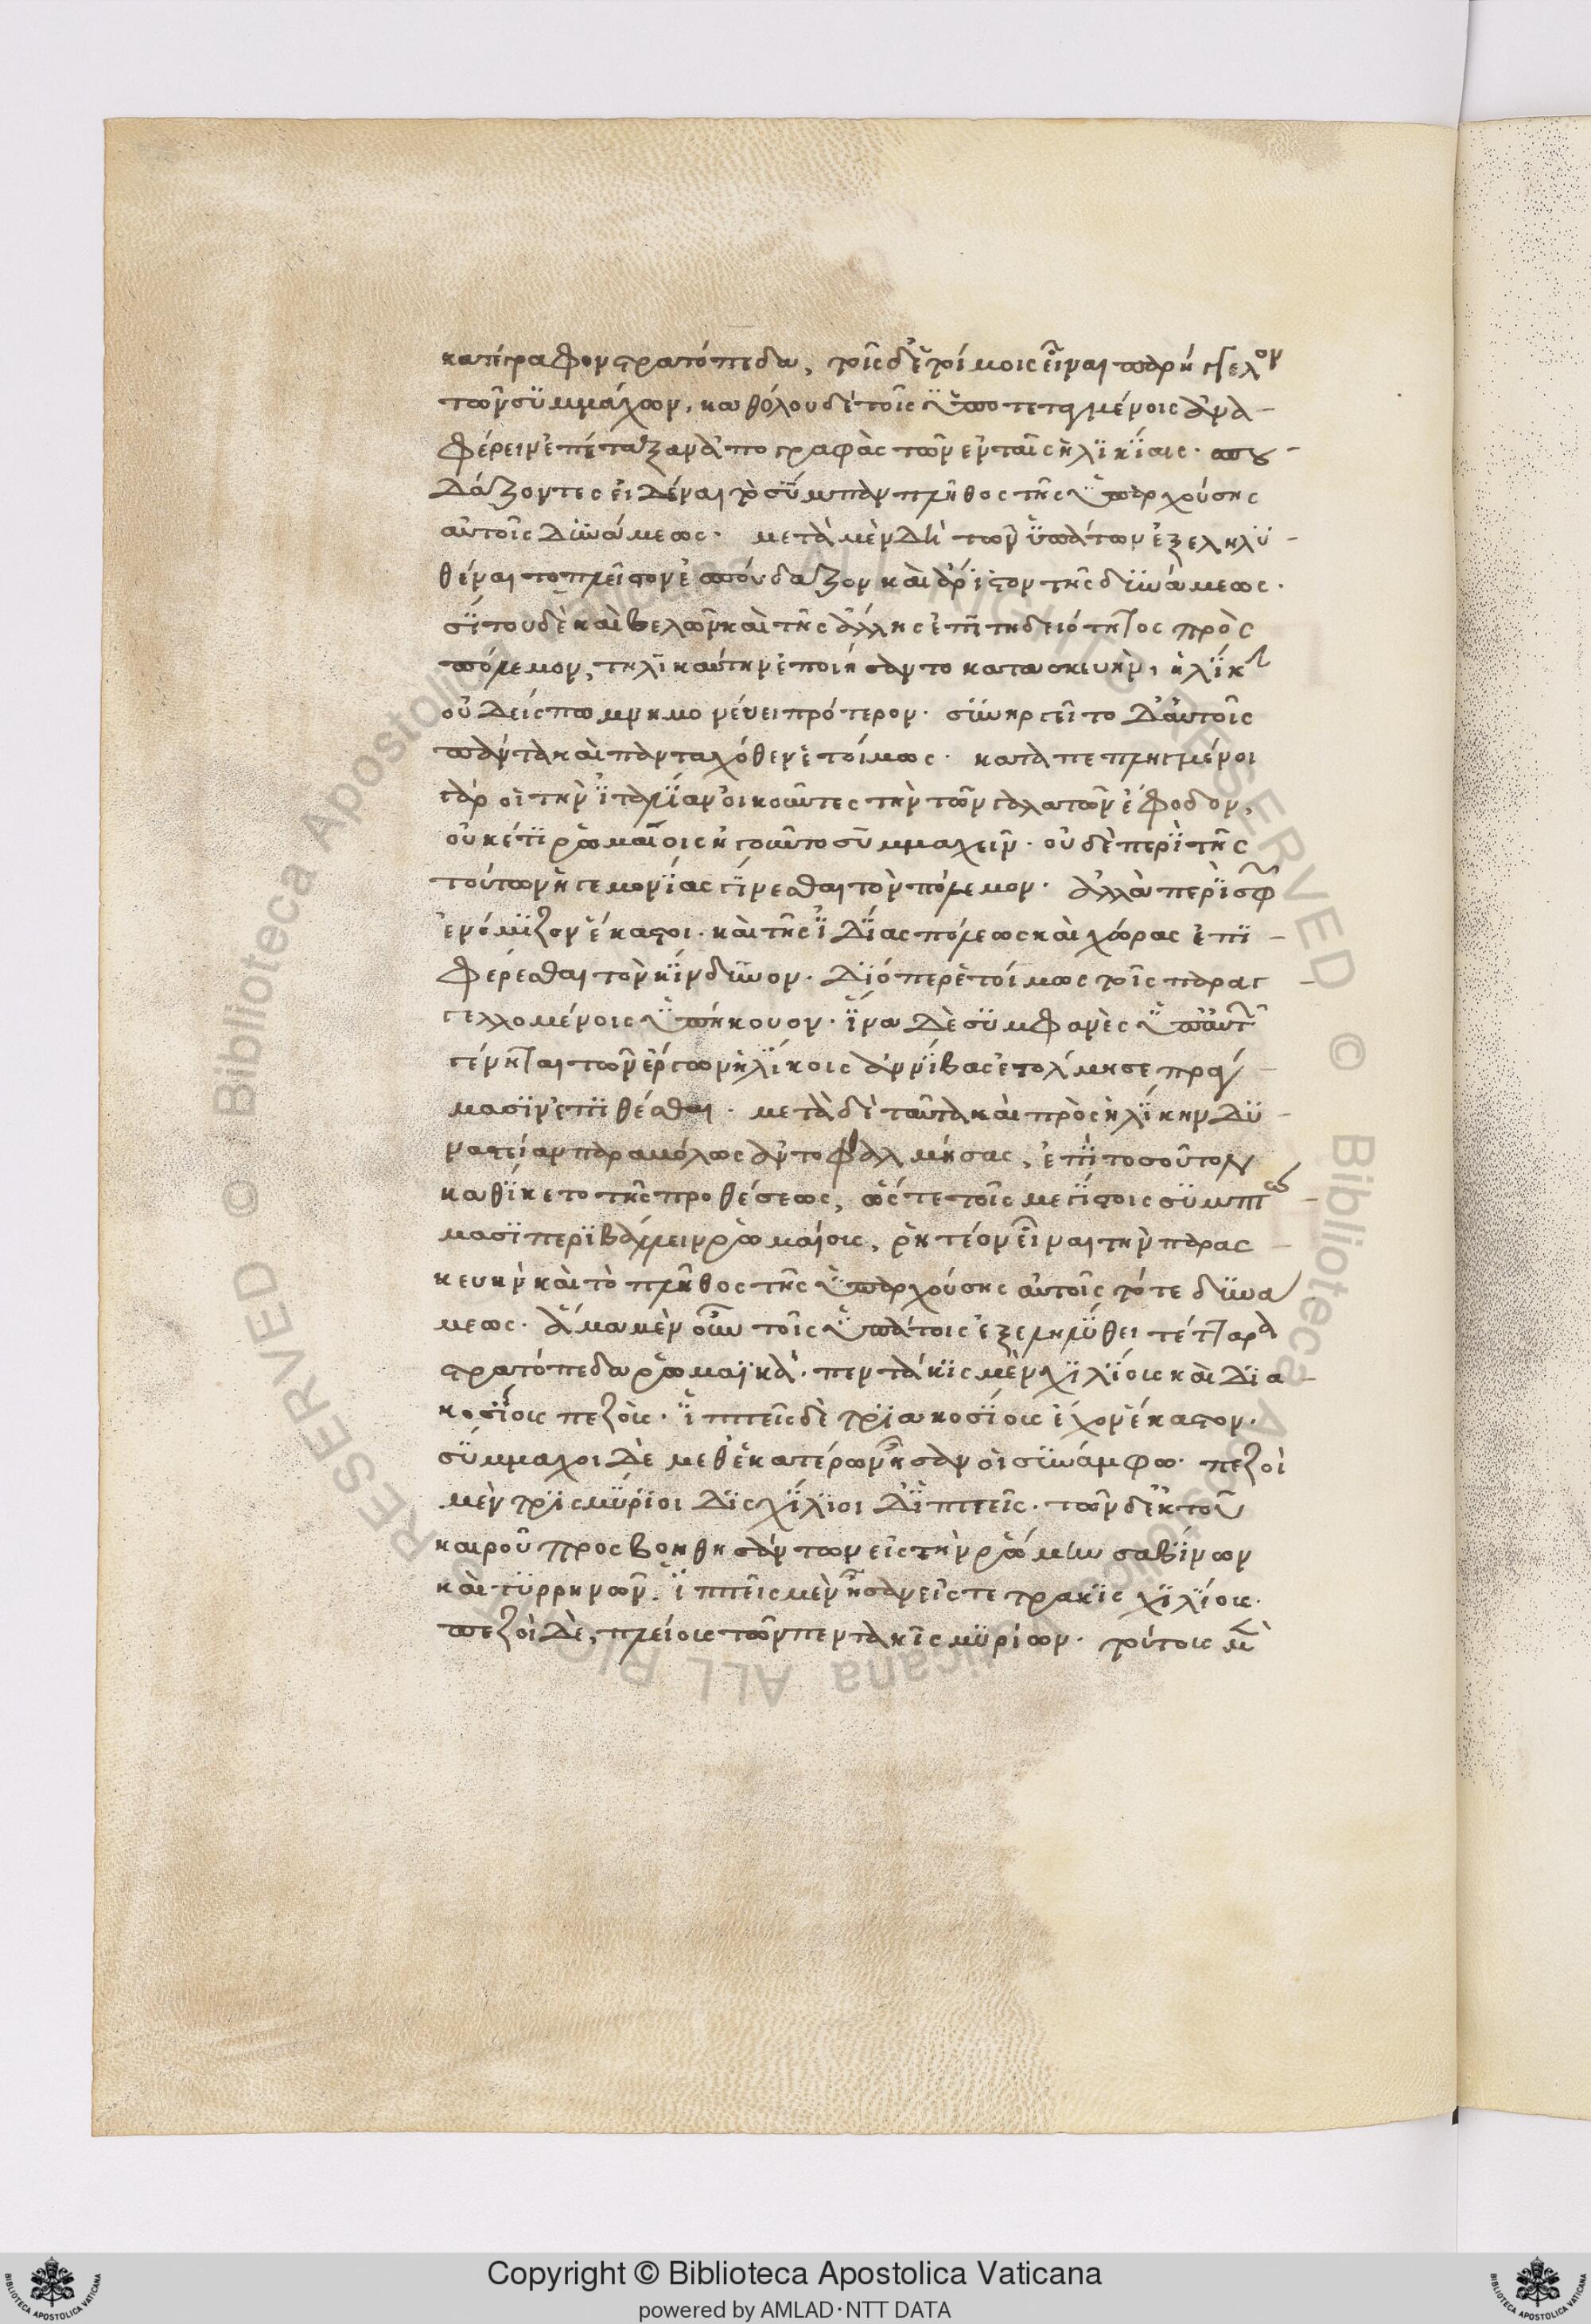 κατέγραφον στρατόπεδα, τοῖς δ' ἑτοίμοις εἶναι παρήγγελον
τῶν συμμάχων. καθόλου δὲ τοῖς ὑποτεταγμένοις ἀνα-
φέρειν ἐπέταξαν ἀπογραφὰς τῶν ἐν ταῖς ἡλικίαις. σπου-
δάζοντες εἰδέναι τὸ σύμπαν πλῆθος τῆς ὑπαρχούσης
αὐτοῖς δυνάμεως. μετὰ μὲν δὴ τῶν ὑπάτων ἐξεληλυ-
θέναι τὸ πλεῖστον ἐσπούδαζον καὶ ἄριστον τῆς δυνάμεως.
σίτου δὲ καὶ βελῶν καὶ τῆς ἄλλης ἐπιτηδειότητος πρὸς
πόλεμον, τηλικαύτην ἐποιήσαντο κατασκευὴν, ἡλίκην
οὐδείς πω μνημονεύει πρότερον. συνηργεῖτο δ' αὐτοῖς
πάντα καὶ πανταχόθεν ἑτοίμως. καταπεπληγμένοι
γὰρ οἱ τὴν ἰταλίαν οἰκοῦντες τὴν τῶν γαλατῶν ἔφοδον,
οὐκέτι ῥωμαίοις ἡγοῦντο συμμαχεῖν. οὐδὲ περὶ τῆς
τούτων ἡγεμονίας γίνεσθαι τὸν πόλεμον. ἀλλὰ περὶ σφῶν
ἐνόμιζον ἕκαστοι. καὶ τῆς ἰδίας πόλεως καὶ χώρας ἐπι-
φέρεσθαι τὸν κίνδυνον. διόπερ ἑτοίμως τοῖς παραγ-
γελλομένοις ὑπήκουον. ἵνα δὲ συμφανὲς ὑπ' αὐτῶν
γένηται τῶν ἔργων ἡλίκοις ἀννίβας ἐτόλμησε πράγ-
μασιν ἐπιθέσθαι. μετὰ δὲ ταῦτα καὶ πρὸς ἡλίκην δυ-
ναστείαν παραβόλως ἀντοφθαλμήσας, ἐπὶ τοσοῦτον
καθίκετο τῆς προθέσεως, ὥστε τοῖς μεγίστοις συμπτώ-
μασι περιβάλλειν ῥωμαίους, ῥητέον εἶναι τὴν παρασ-
κευὴν καὶ τὸ πλῆθος τῆς ὑπαρχούσης αὐτοῖς τότε δυνά
μεως. ἅμα μὲν οὖν τοῖς ὑπάτοις ἐξελήλύθει τέτταρα
στρατόπεδα ῥωμαϊκὰ. πεντάκις μὲν χιλίους καὶ δια-
κοσίους πεζοὺς. ἱππεῖς δὲ τριακοσίους ἔχον ἕκαστον.
σύμμαχοι δὲ μεθ' ἑκατέρων ἦσαν οἱ συνάμφω. πεζοὶ
μὲν τρισμύριοι δισχίλιοι δ' ἱππεῖς. τῶν δ' ἐκ τοῦ
καιροῦ προσβοηθησάντων εἰς τὴν ῥώμην σαβίνων
καὶ τυρρηνῶν. ἱππεῖς μὲν ἦσαν εἰς τετρακισχιλίους.
πεζοὶ δὲ, πλείους τῶν πεντακισμυρίων. τούτους μὲν